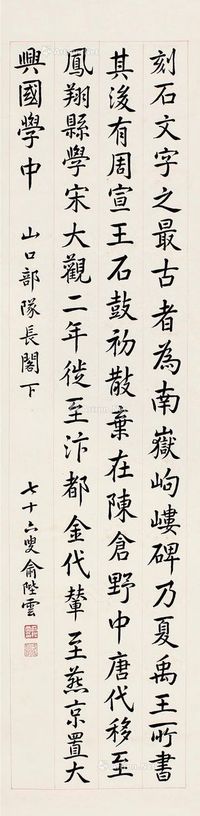 刻石文字之最古者為南嶽岣嶁碑乃夏禹王所書
其後有周宣王石鼓初散棄在陳倉野中唐代移至
鳳翔縣學宋大觀二年徙至汴都金代輦至燕京置大
興國學中
山口部隊長閣下
七十六叟俞陛雲